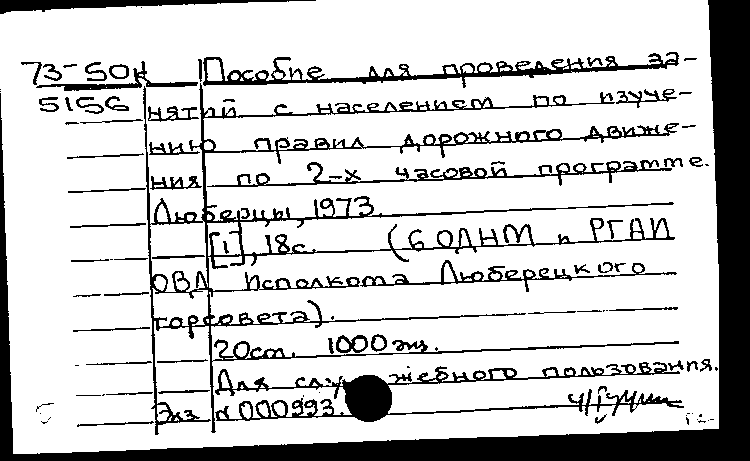 73-50к Пособие для проведения за-
5156 нятий с населением по изуче-
нию правил дорожного движе-
ния по 2-х часовой программе.
Люберцы, 1973.
[1], 18с. (6 ОДНМ и РГАИ
ОВД Исполкома Люберецкого
горсовета).
20см. 1000 экз.
Для служебного пользования.
Экз. 000993.